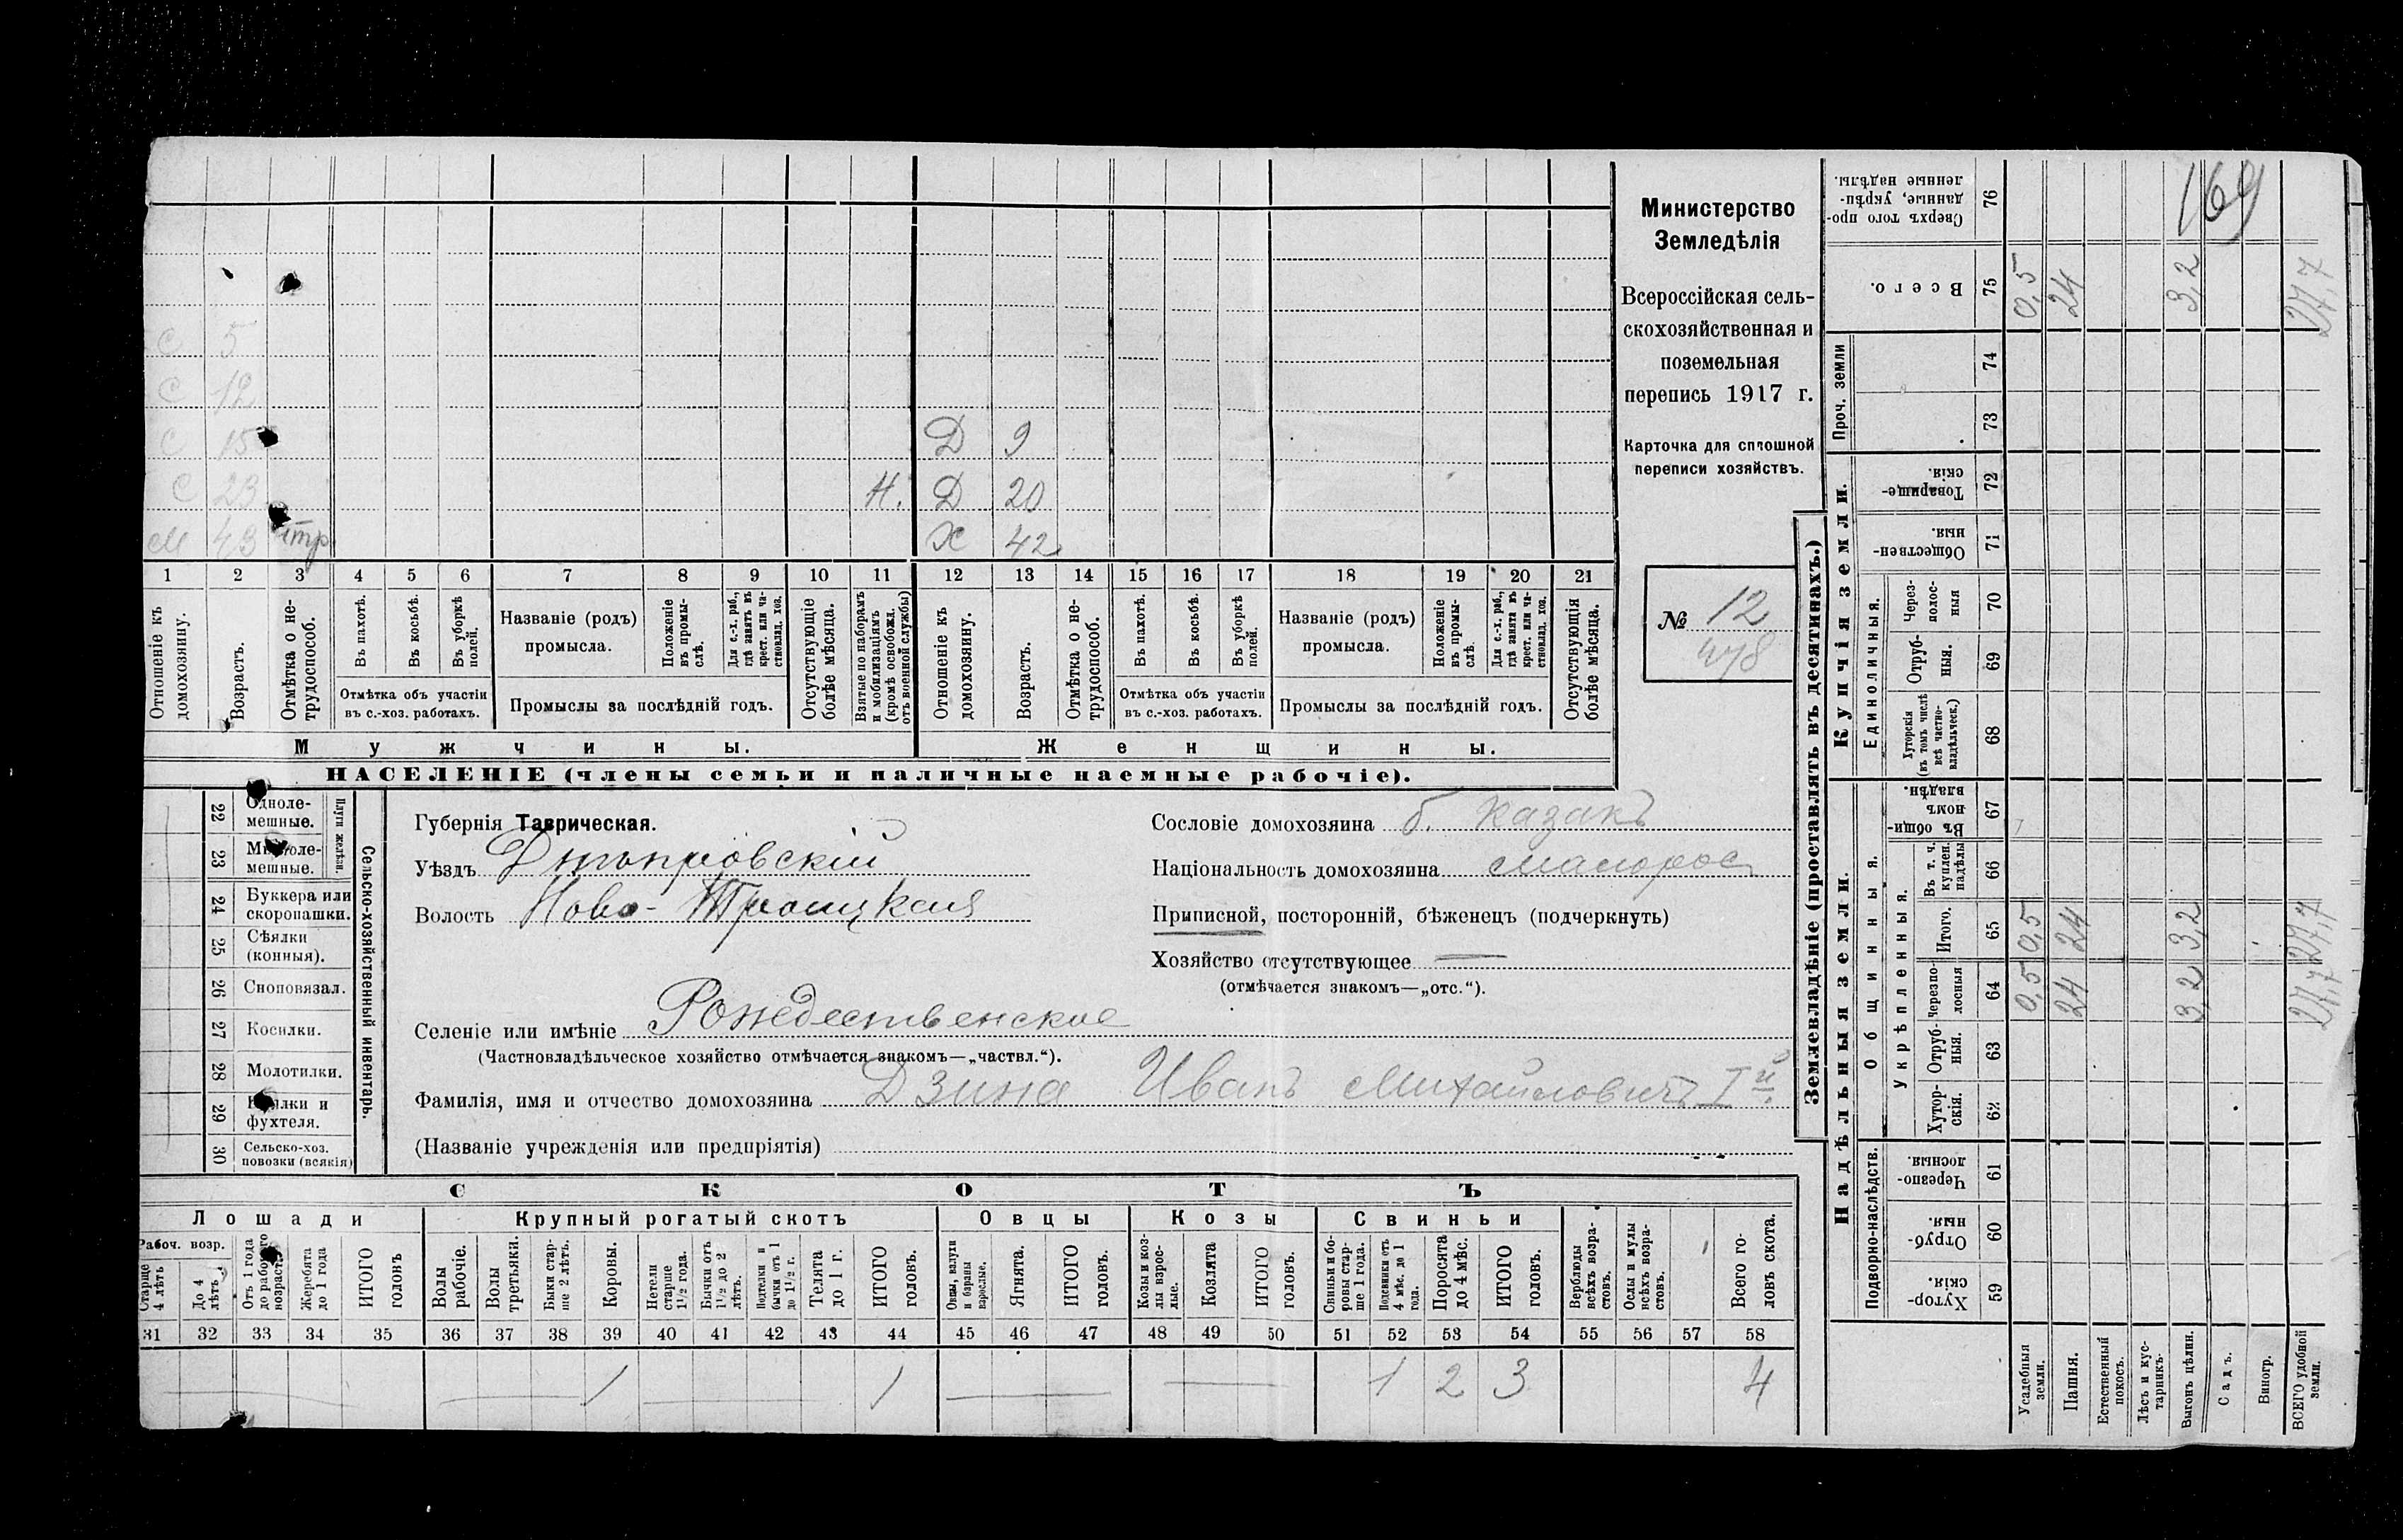 С 5
С 12
С 15 Д 9
С 23 Н. Д 20
М 43 Х 42
1 2 3 4 5 6 7 8 9 10 11 12 13 14 15 16 17 18 19 20 21
Отношеніе къ домохозяину.
Возрастъ.
Отмѣтка о нетрудоспособ.
Въ пахотѣ.
Въ косьбѣ.
Въ уборкѣ полей.
Отмѣтка объ участіи
въ с.-хоз. работахъ.
Названіе (родъ)
промысла.
Положеніе въ промыслѣ.
Для с.-х. раб., гдѣ занятъ въ крест. или частновлад. хоз.
Промыслы за послѣдній годъ.
Отсутствующіе болѣе мѣсяца.
Взятые по наборамъ и мобилизаціямъ (кромѣ освобожд. отъ военной службы)
Отношеніе къ домохозяину.
Возрастъ.
Отмѣтка о нетрудоспособ.
Въ пахотѣ.
Въ косьбѣ.
Въ уборкѣ полей.
Отмѣтка объ участіи
въ с.-хоз. работахъ.
Названіе (родъ)
промысла.
Положеніе въ промыслѣ.
Для с.-х. раб., гдѣ занята въ крест. или частновлад. хоз.
Промыслы за послѣдній годъ.
Отсутствующія болѣе мѣсяца.
Мужчины. Женщины.
НАСЕЛЕНІЕ (члены семьи и наличные наемные рабочіе).
Министерство
Земледѣлія
Всероссійская сель-
скохозяйственная и
поземельная
перепись 1917 г.
Карточка для сплошной
переписи хозяйствъ.
№ 12
478
22 Одноле-
мешные.
23 Многоле-
мешные.
Плуги желѣзн.
24 Буккера или
скоропашки.
25 Сѣялки
(конныя).
26 Сноповязал.
27 Косилки.
28 Молотилки.
29 Вѣялки и
фухтеля.
30 Сельско-хоз.
повозки (всякія)
Сельско-хозяйственный инвентарь.
Губернія Таврическая.
Уѣздъ Днѣпровскій
Волость Ново-Троицкая
Сословіе домохозяина б. казакъ
Національность домохозяина малорос
Приписной, посторонній, бѣженецъ (подчеркнуть)
Хозяйство отсутствующее —
(отмѣчается знакомъ—„отс.“).
Селеніе или имѣніе Рождественское
(Частновладѣльческое хозяйство отмѣчается знакомъ—„частвл.“).
Фамилія, имя и отчество домохозяина Дзина Иванъ Михайловичъ Iй
(Названіе учрежденія или предпріятія)
СКОТЪ
Лошади Крупный рогатый скотъ Овцы Козы Свиньи
Рабоч. возр.
Старше 4 лѣтъ
До 4 лѣтъ
Отъ 1 года до рабочаго возраста
Жеребята до 1 года
ИТОГО головъ
Волы рабочіе.
Волы третьяки.
Быки старше 2 лѣтъ.
Коровы.
Нетели старше 1 1/2 года.
Бычки отъ 1 1/2 до 2 лѣтъ.
Подтелки и бычки отъ 1 до 1 1/2 г.
Телята до 1 г.
ИТОГО головъ.
Овцы, валухи и бараны взрослые.
Ягнята.
ИТОГО головъ.
Козы и козлы взрослые.
Козлята
ИТОГО головъ.
Свиньи и боровы старше 1 года.
Подсвинки отъ 4 мѣс. до 1 года.
Поросята до 4 мѣс.
ИТОГО головъ.
Верблюды всѣхъ возрастовъ.
Ослы и мулы всѣхъ возрастовъ.
Всего головъ скота.
31 32 33 34 35 36 37 38 39 40 41 42 43 44 45 46 47 48 49 50 51 52 53 54 55 56 57 58
1 1 1 2 3 4
Землевладѣніе (проставлять въ десятинахъ.)
Надѣльныя земли.
Купчія земли.
Проч. земли
Подворно-наслѣдств.
Общинныя.
Укрѣпленныя.
Единоличныя.
Сверхъ того проданные, укрѣпленные надѣлы. 76
Всего. 75
74
73
Товарищескія. 72
Общественныя. 71
Черезполосныя 70
Отрубныя. 69
Хуторскія (въ томъ числѣ всѣ частновладѣльческ.) 68
Въ общинномъ владѣн. 67
Въ т. ч. куплен. надѣлы 66
Итого. 65
Черезполосныя 64
Отрубныя. 63
Хуторскія. 62
Черезполосныя. 61
Отрубныя. 60
Хуторскія. 59
Усадебныя земли. 0,5 0,5 0,5
Пашня. 24 24 24
Естественный покосъ.
Лѣсъ и кустарникъ.
Выгонъ цѣлин. 3,2 3,2 3,2
Садъ.
Виногр.
ВСЕГО удобной земли. 27,7 27,7 27,7
169